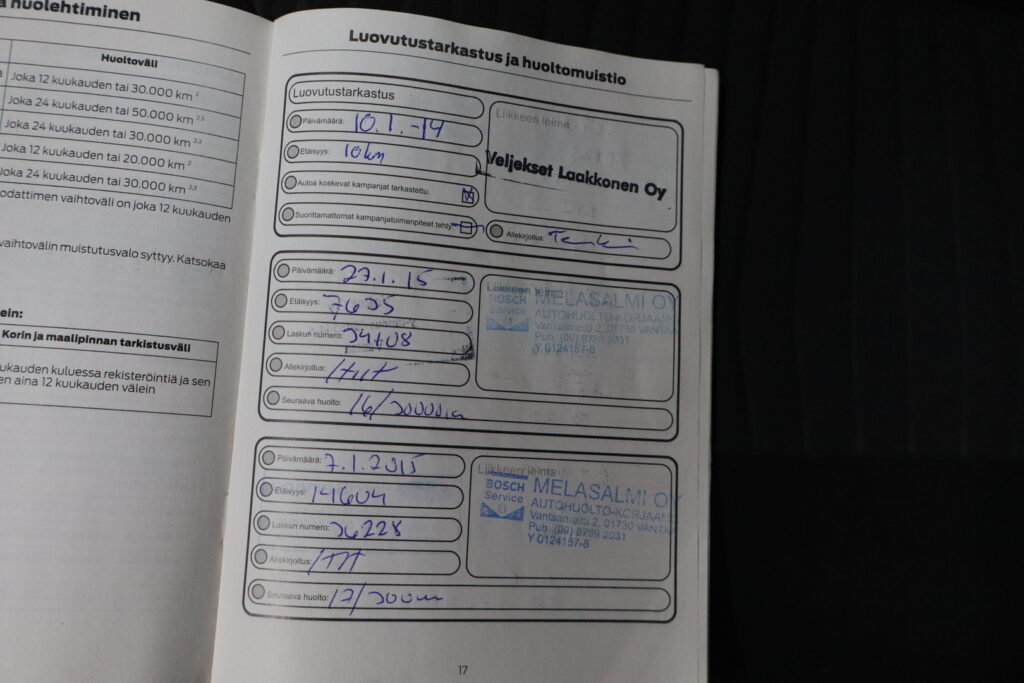 a huolehtiminen
Huoltoväli
Joka 12 kuukauden tai 30.000 km 2
Joka 24 kuukauden tai 50.000 km 2,3
Joka 24 kuukauden tai 30.000 km 2,3
Joka 12 kuukauden tai 20.000 km 2
Joka 24 kuukauden tai 30.000 km 2,3
odattimen vaihtoväli on joka 12 kuukauden
vaihtovälin muistutusvalo syttyy. Katsokaa
ein:
Korin ja maalipinnan tarkistusväli
ukauden kuluessa rekisteröintiä ja sen
en aina 12 kuukauden välein
Luovutustarkastus ja huoltomuistio
Luovutustarkastus
Päivämäärä: 10.1.-14
Etäisyys: 10km
Autoa koskevat kampanjat tarkastettu:
Suorittamattomat kampanjatoimenpiteet tehty
Liikkeen leima
Veljekset Laakkonen Oy
Allekirjoitus:
Päivämäärä: 27.1.15
Etäisyys: 7605
Laskun numero:
Allekirjoitus:
Seuraava huolto:
Liikkeen leima
BOSCH Service
MELASALMI OY
AUTOHUOLTO-KORJAAM
Vantaanlaita 2, 01730 VANTA
Puh. (09) 8789 2031
Y 0124157-6
Päivämäärä: 7.1.2015
Etäisyys: 14604
Laskun numero: 36228
Allekirjoitus:
Seuraava huolto:
Liikkeen leima
BOSCH Service
MELASALMI OY
AUTOHUOLTO-KORJAAM
01730 VANTA
Puh. (09) 8789 2031
Y 0124157-6
17